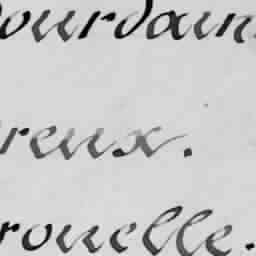 ourdain
reux.
rouelle.